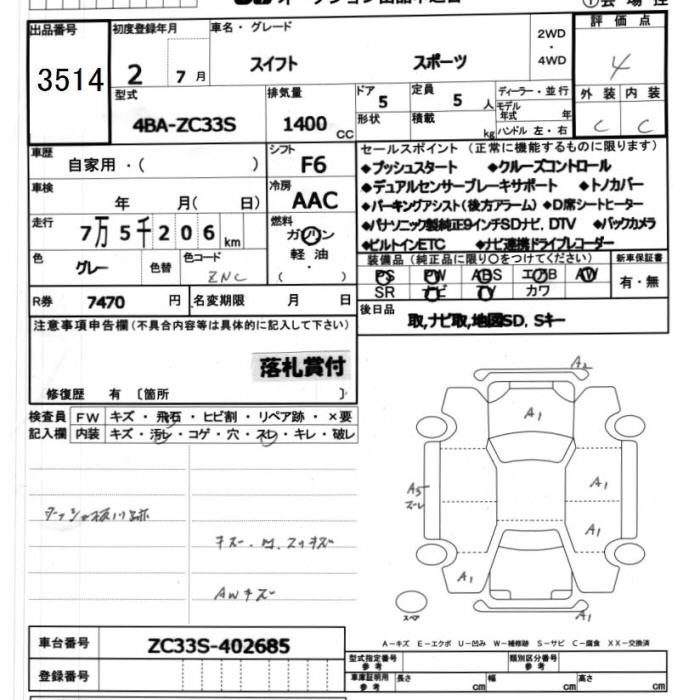 出品番号 初度登録年月 車名・グレード 2WD・4WD 評価点
3514 2 7月 スイフト スポーツ 4
型式 排気量 ドア 5 定員 5人 ディーラー・並行 外装 内装
4BA-ZC33S 1400cc 形状 積載 kg モデル年式 年 C C
ハンドル 左・右
車歴 自家用・( ) シフト F6 セールスポイント (正常に機能するものに限ります)
◆プッシュスタート ◆クルーズコントロール
車検 年 月( 日) 冷房 AAC ◆デュアルセンサーブレーキサポート ◆トノカバー
◆パーキングアシスト(後方アラーム) ◆D席シートヒーター
走行 7万5千206km 燃料 ガソリン 軽油・( ) ◆パナソニック製純正9インチSDナビ,DTV ◆バックカメラ
◆ビルトインETC ◆ナビ連携ドライブレコーダー
色 グレー 色替 色コード ZNC 装備品(純正品に限り○をつけてください) 新車保証書
PS PW ABS エアB AW 有・無
SR ナビ TV カワ
R券 7470円 名変期限 月 日 後日品
取,ナビ取,地図SD, Sキー
注意事項申告欄(不具合内容等は具体的に記入して下さい)
落札賞付
修復歴 有 〔箇所 〕
検査員 FW キズ・飛石・ヒビ割・リペア跡・×要
記入欄 内装 キズ・汚レ・コゲ・穴・スレ・キレ・破レ
A2
A1
A5 スレ
A1
A1
A1
A1
スペア
キズ・凹・スリキズ
AWキズ
A−キズ E−エクボ U−凹み W−補修跡 S−サビ C−腐食 XX−交換済
車台番号 ZC33S-402685
型式指定番号 参考 類別区分番号 参考
登録番号 車庫証明用 参考 長さ cm 幅 cm 高さ cm